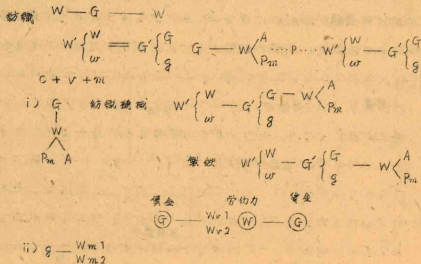 紡織 W — G — W
W' { W w = G' { G g G — W < A Pm ··· P ··· W' { W w — G' { G g
c + v + m
i) G — W < Pm A 紡織機械 W' { W w — G' { G g — W < A Pm
製鉄 W' { W w — G' { G g — W < A Pm
賃金 労仂力 賃金
G — Wv1 Wv2 W — G
ii) g — Wm1 Wm2